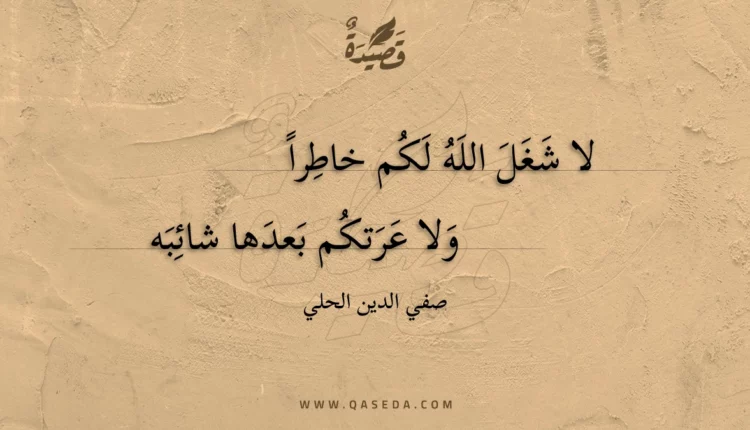 قَصِيدَةٌ
لا شَغَلَ اللَهُ لَكُم خاطِراً
وَلا عَرَتكُم بَعدَها شائِبَه
صفي الدين الحلي
WWW.QASEDA.COM